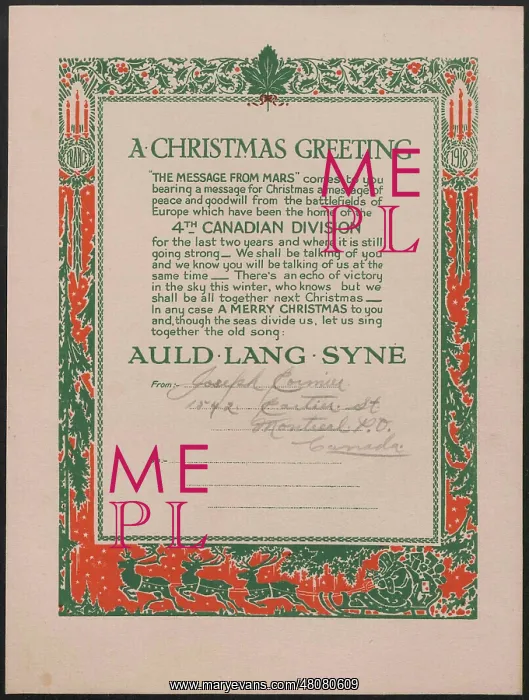 FRANCE
1918
A·CHRISTMAS GREETING
"THE MESSAGE FROM MARS" comes to you
bearing a message for Christmas a message of
peace and goodwill from the battlefields of
Europe which have been the home of the
4TH CANADIAN DIVISION
for the last two years and where it is still
going strong — We shall be talking of you
and we know you will be talking of us at the
same time — There's an echo of victory
in the sky this winter, who knows but we
shall be all together next Christmas —
In any case A MERRY CHRISTMAS to you
and, though the seas divide us, let us sing
together the old song:
AULD·LANG·SYNE
From:- Joseph Cormier
1542 Cartier St
Montreal P.Q.
Canada.
ME
PL
ME
PL
www.maryevans.com/48080609